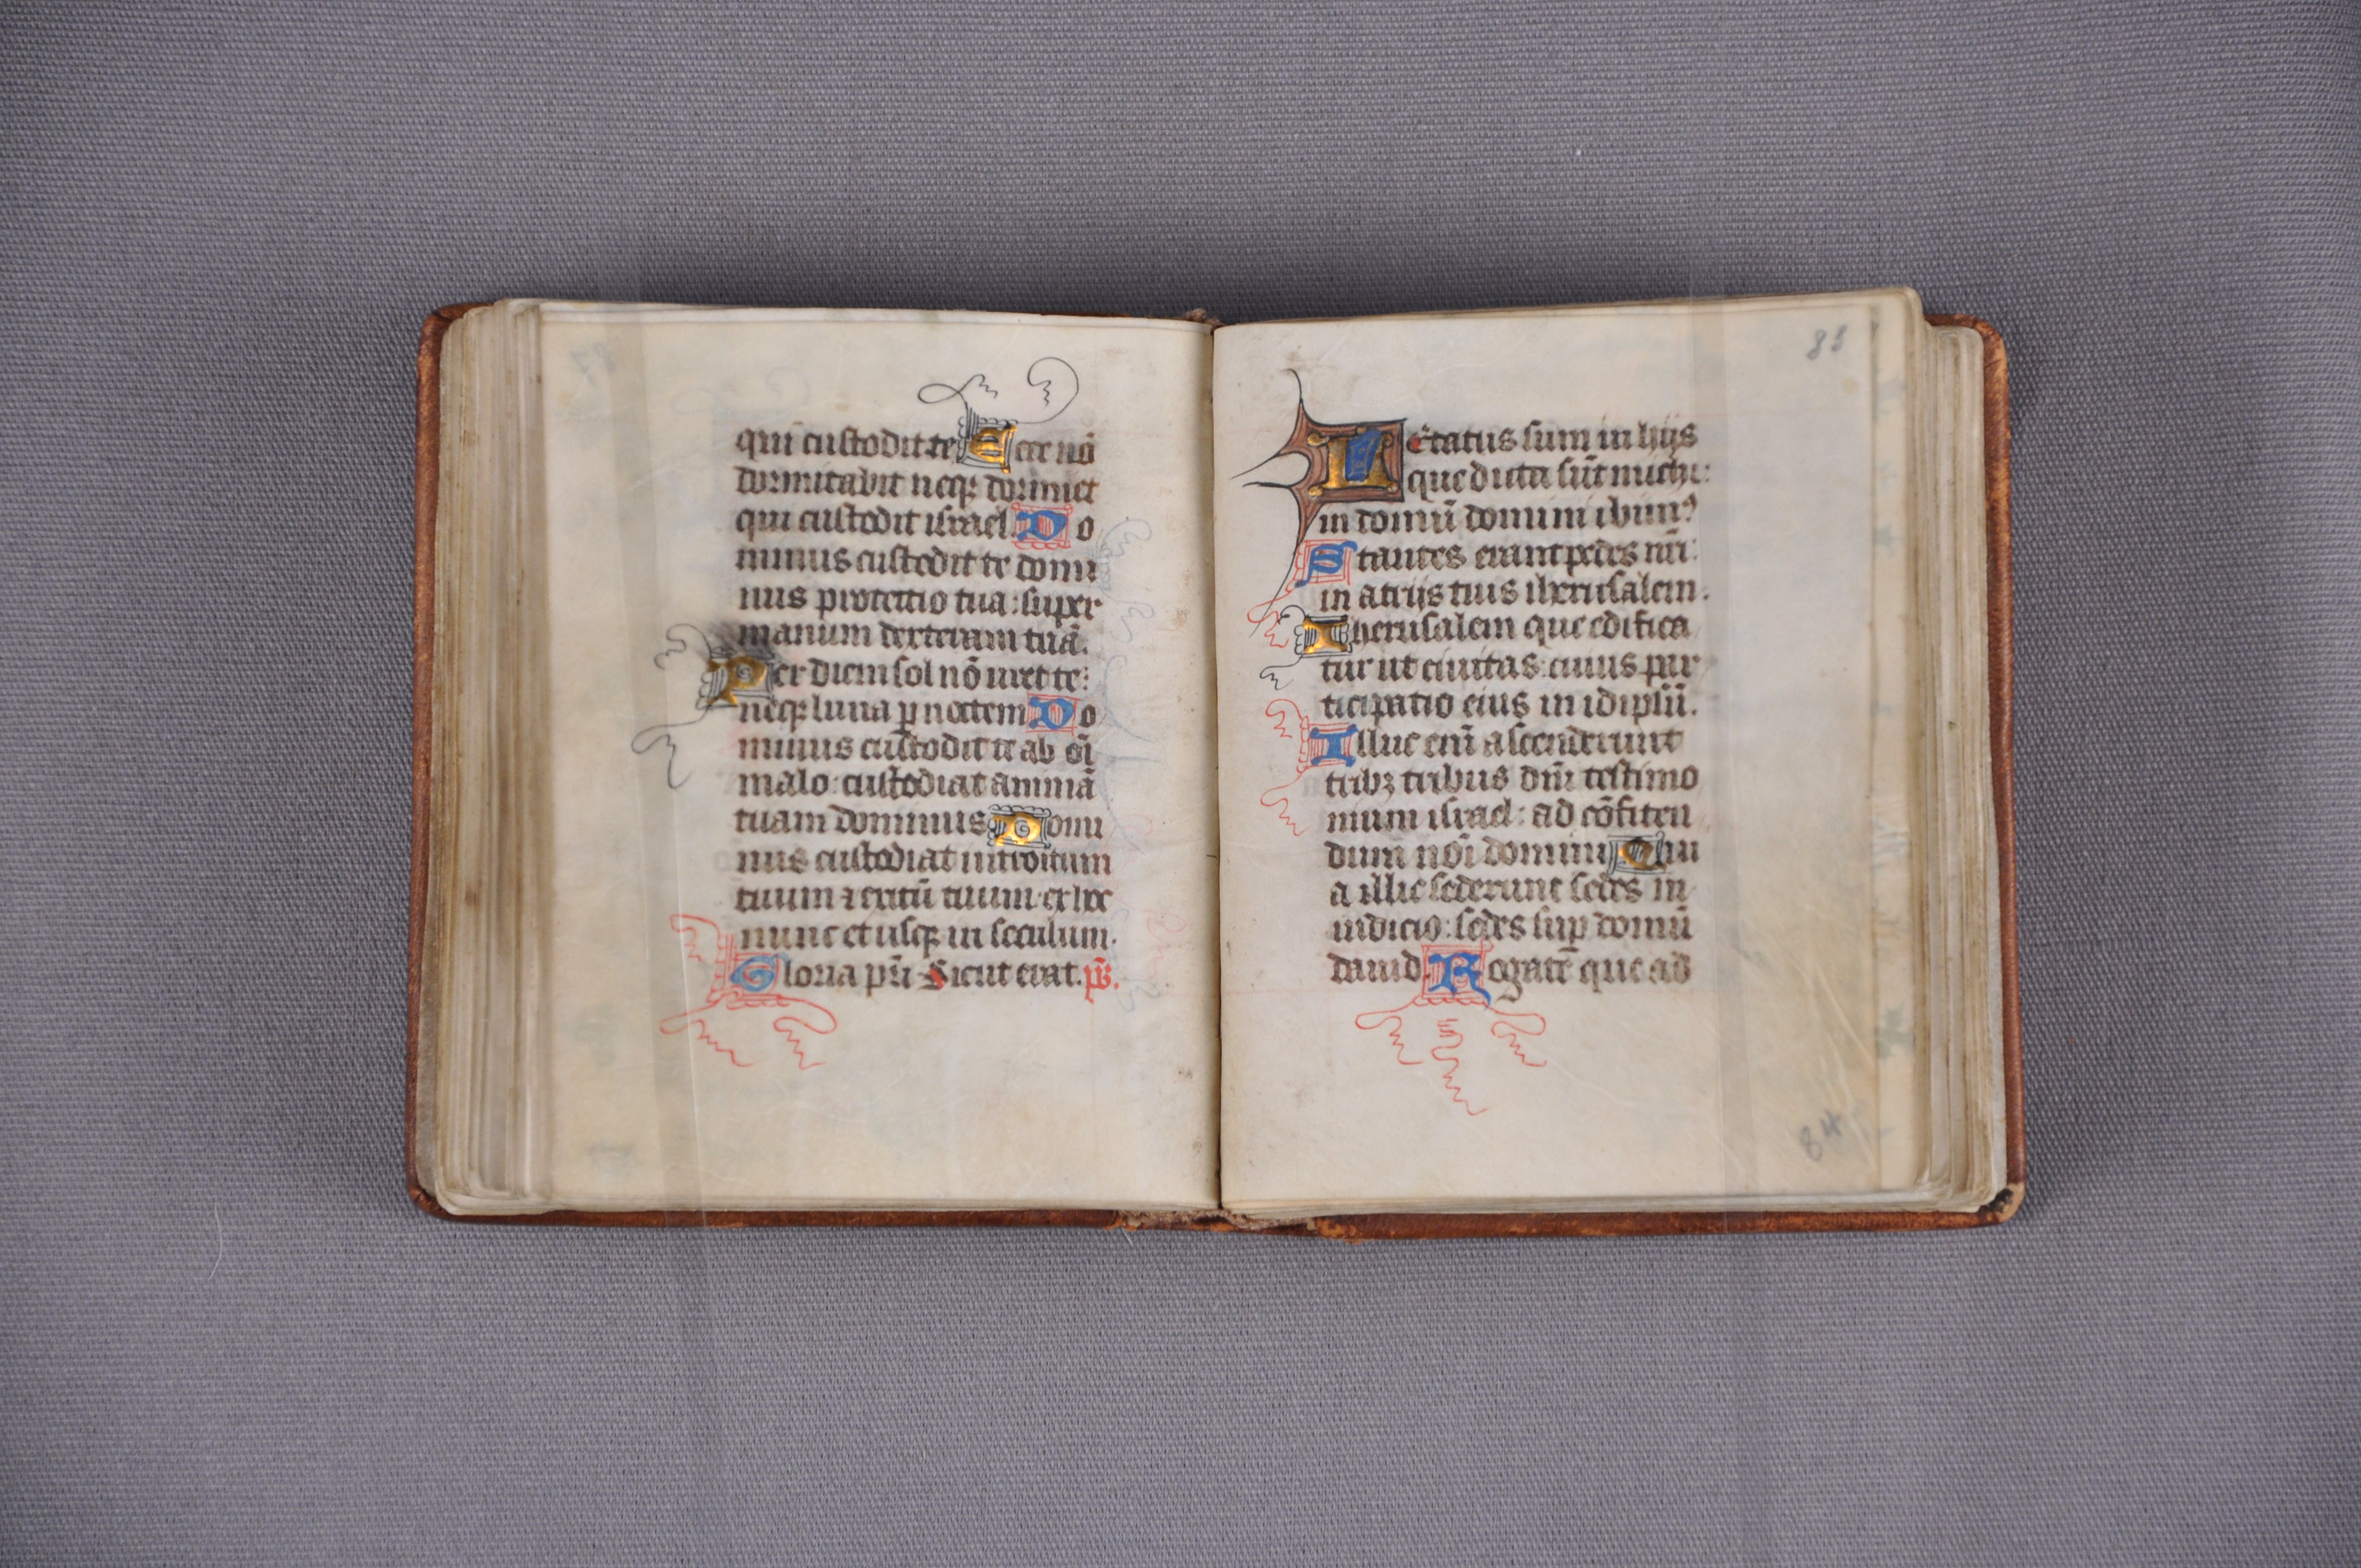 qui custodit te Ecce nō
dormitabit neqꝫ dormiet
qui custodit israel. Do
minus custodit te domi
nus protectio tua: super
manum dexteram tuā.
Per diem sol nō uret te:
neqꝫ luna ꝑ noctem Do
minus custodit te ab oī
malo: custodiat animā
tuam dominus Domi
nus custodiat introitum
tuum ⁊ exitū tuum: ex hoc
nunc et usqꝫ in seculum.
Gloria pr̄i Sicut erat. ps̄.
83
Letatus sum in hijs
que dicta sūt michi:
in domū domini ibimꝰ
Stantes erant pedes nr̄i:
in atrijs tuis iherusalem.
Iherusalem que edifica
tur ut ciuitas: cuius par
ticipatio eius in idipsū.
Illuc enī ascenderunt
tribꝫ tribus dn̄i testimo
nium israel: ad cōfiten
dum noī domini Qui
a illic sederunt sedes in
iudicio: sedes suꝑ domū
dauid Rogate que ad
84